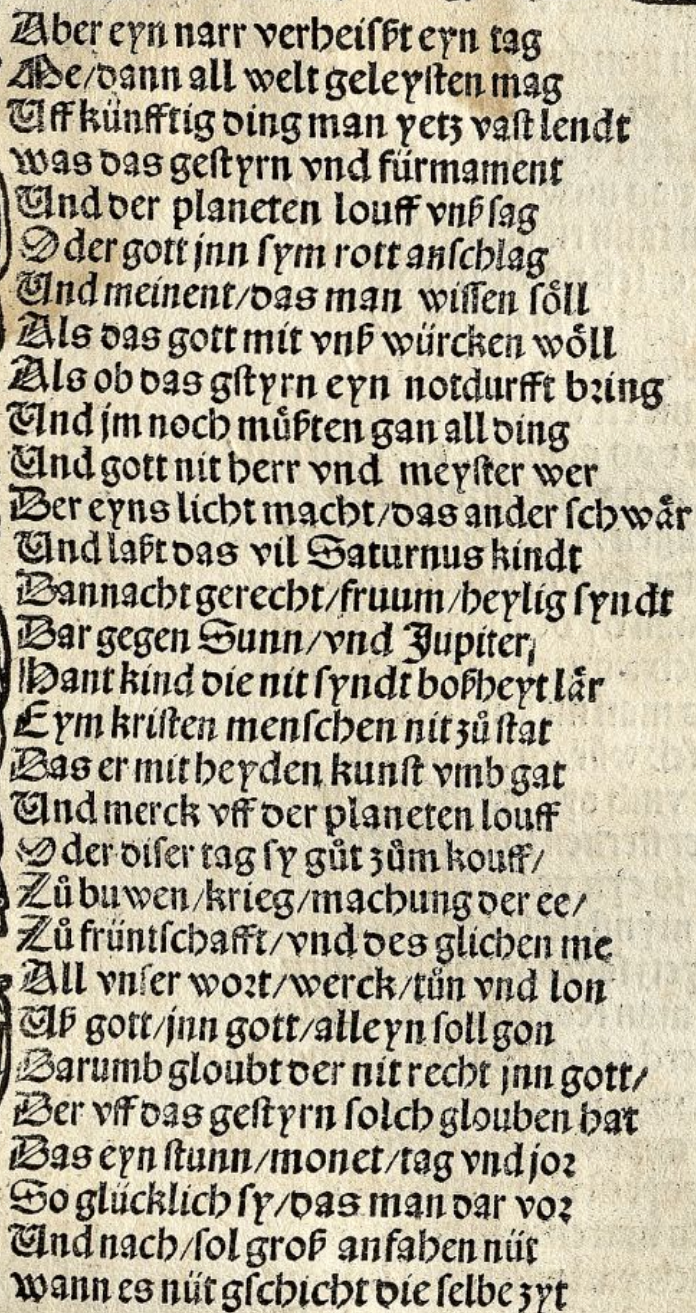 Aber eyn narr verheißt eyn tag
Me/dann all welt geleysten mag
Uff künfftig ding man yetz vast lendt
was das gestyrn vnd fürmament
Und der planeten louff vnß sag
Oder gott jnn sym rott anschlag
Und meinent/das man wissen söll
Als das gott mit vnß würcken wöll
Als ob das gstyrn eyn notdurfft bring
Und jm noch müßten gan all ding
Und gott nit herr vnd meyster wer
Der eyns licht macht/das ander schwår
Und laßt das vil Saturnus kindt
Dannacht gerecht/fruum/heylig syndt
Dar gegen Sunn/vnd Jupiter/
Hant kind die nit syndt boßheyt lår
Eym kristen menschen nit zů stat
Das er mit heyden kunst vmb gat
Und merck vff der planeten louff
Oder diser tag sy gůt zům kouff/
Zů buwen/krieg/machung der ee/
Zů früntschafft/vnd des glichen me
All vnser wort/werck/tůn vnd lon
Uß gott/jnn gott/alleyn soll gon
Darumb gloubt der nit recht jnn gott/
Der vff das gestyrn solch glouben hat
Das eyn stunn/monet/tag vnd jor
So glücklich sy/das man dar vor
Und nach/sol groß anfahen nüt
wann es nüt gschicht die selbe zyt